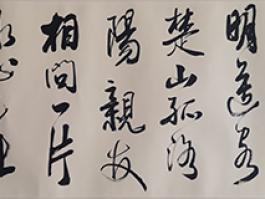 明送客
楚山孤洛
陽親友
相問一片